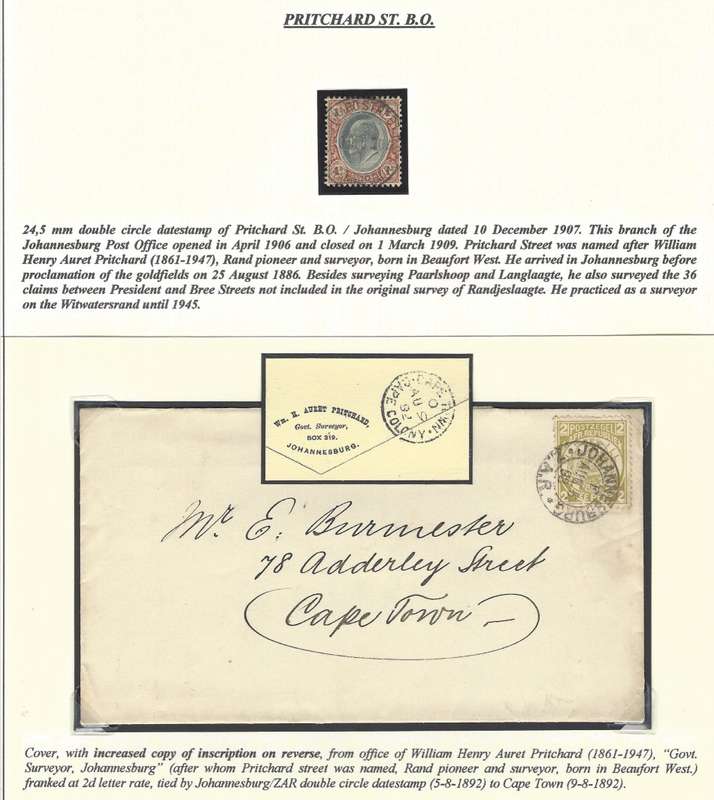 PRITCHARD ST. B.O.
POSTZEGEL
24,5 mm double circle datestamp of Pritchard St. B.O. / Johannesburg dated 10 December 1907. This branch of the
Johannesburg Post Office opened in April 1906 and closed on 1 March 1909. Pritchard Street was named after William
Henry Auret Pritchard (1861-1947), Rand pioneer and surveyor, born in Beaufort West. He arrived in Johannesburg before
proclamation of the goldfields on 25 August 1886. Besides surveying Paarlshoop and Langlaagte, he also surveyed the 36
claims between President and Bree Streets not included in the original survey of Randjeslaagte. He practiced as a surveyor
on the Witwatersrand until 1945.
WM. H. AURET PRITCHARD,
Govt. Surveyor,
BOX 319.
JOHANNESBURG.
CAPE TOWN · CAPE COLONY
AU
92
2 POSTZEGEL 2
Z. AFR. REPUBLIEK
2 2
JOHANNESBURG
Z.A.R.
AUG
Mr. E. Burmester
78 Adderley Street
Cape Town
Cover, with increased copy of inscription on reverse, from office of William Henry Auret Pritchard (1861-1947), "Govt.
Surveyor, Johannesburg" (after whom Pritchard street was named, Rand pioneer and surveyor, born in Beaufort West.)
franked at 2d letter rate, tied by Johannesburg/ZAR double circle datestamp (5-8-1892) to Cape Town (9-8-1892).